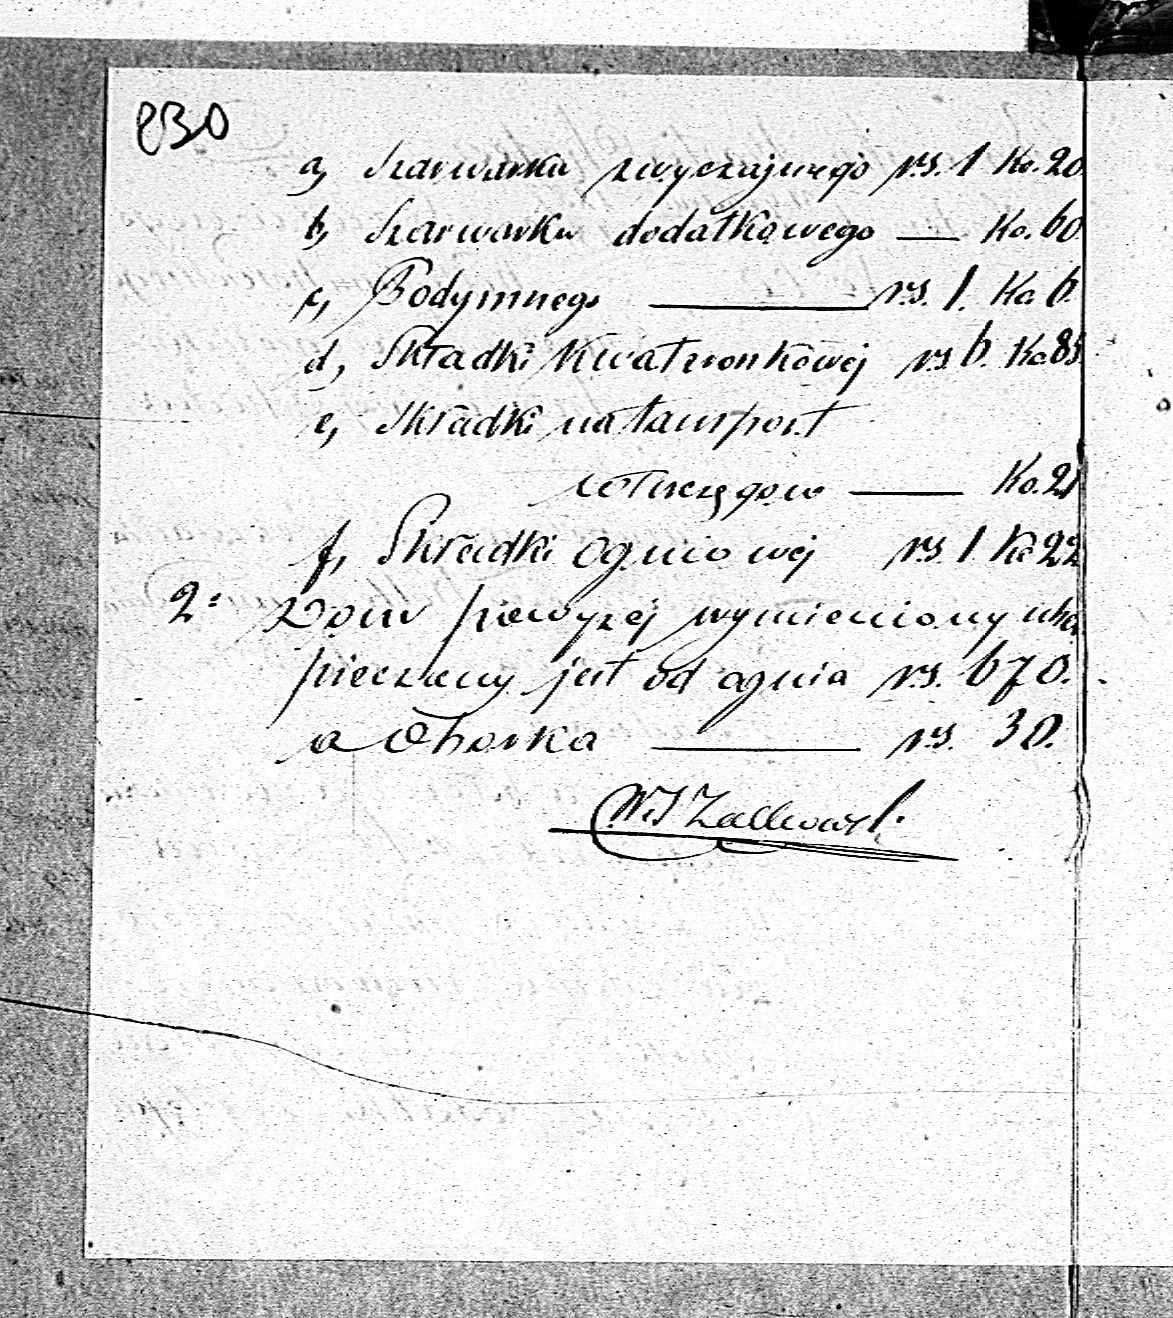 830
a, Szarwarku zwyczajnego rs. 1 Ko. 20
b, Szarwarku dodatkowego — Ko. 60
c, Podymnego — rs. 1. Ko 6.
d, Składki Kwaterunkowej rs 6. Ko 85
e, Składki na tansport
włuczęgow — Ko. 21
f, Składki ogniowej rs 1 Ko 22
2: Dom powyzej wymieniony uba
pieczony jest od ognia rs. 670.
a Oborka — rs. 30.